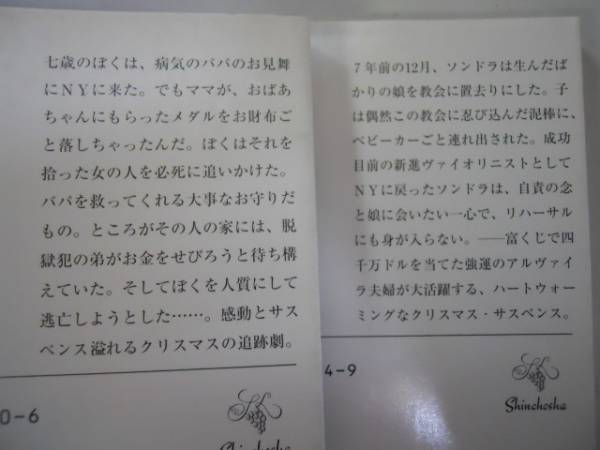 七歳のぼくは、病気のパパのお見舞
にNYに来た。でもママが、おばあ
ちゃんにもらったメダルをお財布ご
と落しちゃったんだ。ぼくはそれを
拾った女の人を必死に追いかけた。
パパを救ってくれる大事なお守りだ
もの。ところがその人の家には、脱
獄犯の弟がお金をせびろうと待ち構
えていた。そしてぼくを人質にして
逃亡しようとした……。感動とサス
ペンス溢れるクリスマスの追跡劇。
0-6
Shinchosha
7年前の12月、ソンドラは生んだば
かりの娘を教会に置去りにした。子
は偶然この教会に忍び込んだ泥棒に、
ベビーカーごと連れ出された。成功
目前の新進ヴァイオリニストとして
NYに戻ったソンドラは、自責の念
と娘に会いたい一心で、リハーサル
にも身が入らない。――富くじで四
千万ドルを当てた強運のアルヴァイ
ラ夫婦が大活躍する、ハートウォー
ミングなクリスマス・サスペンス。
4-9
Shinchosha